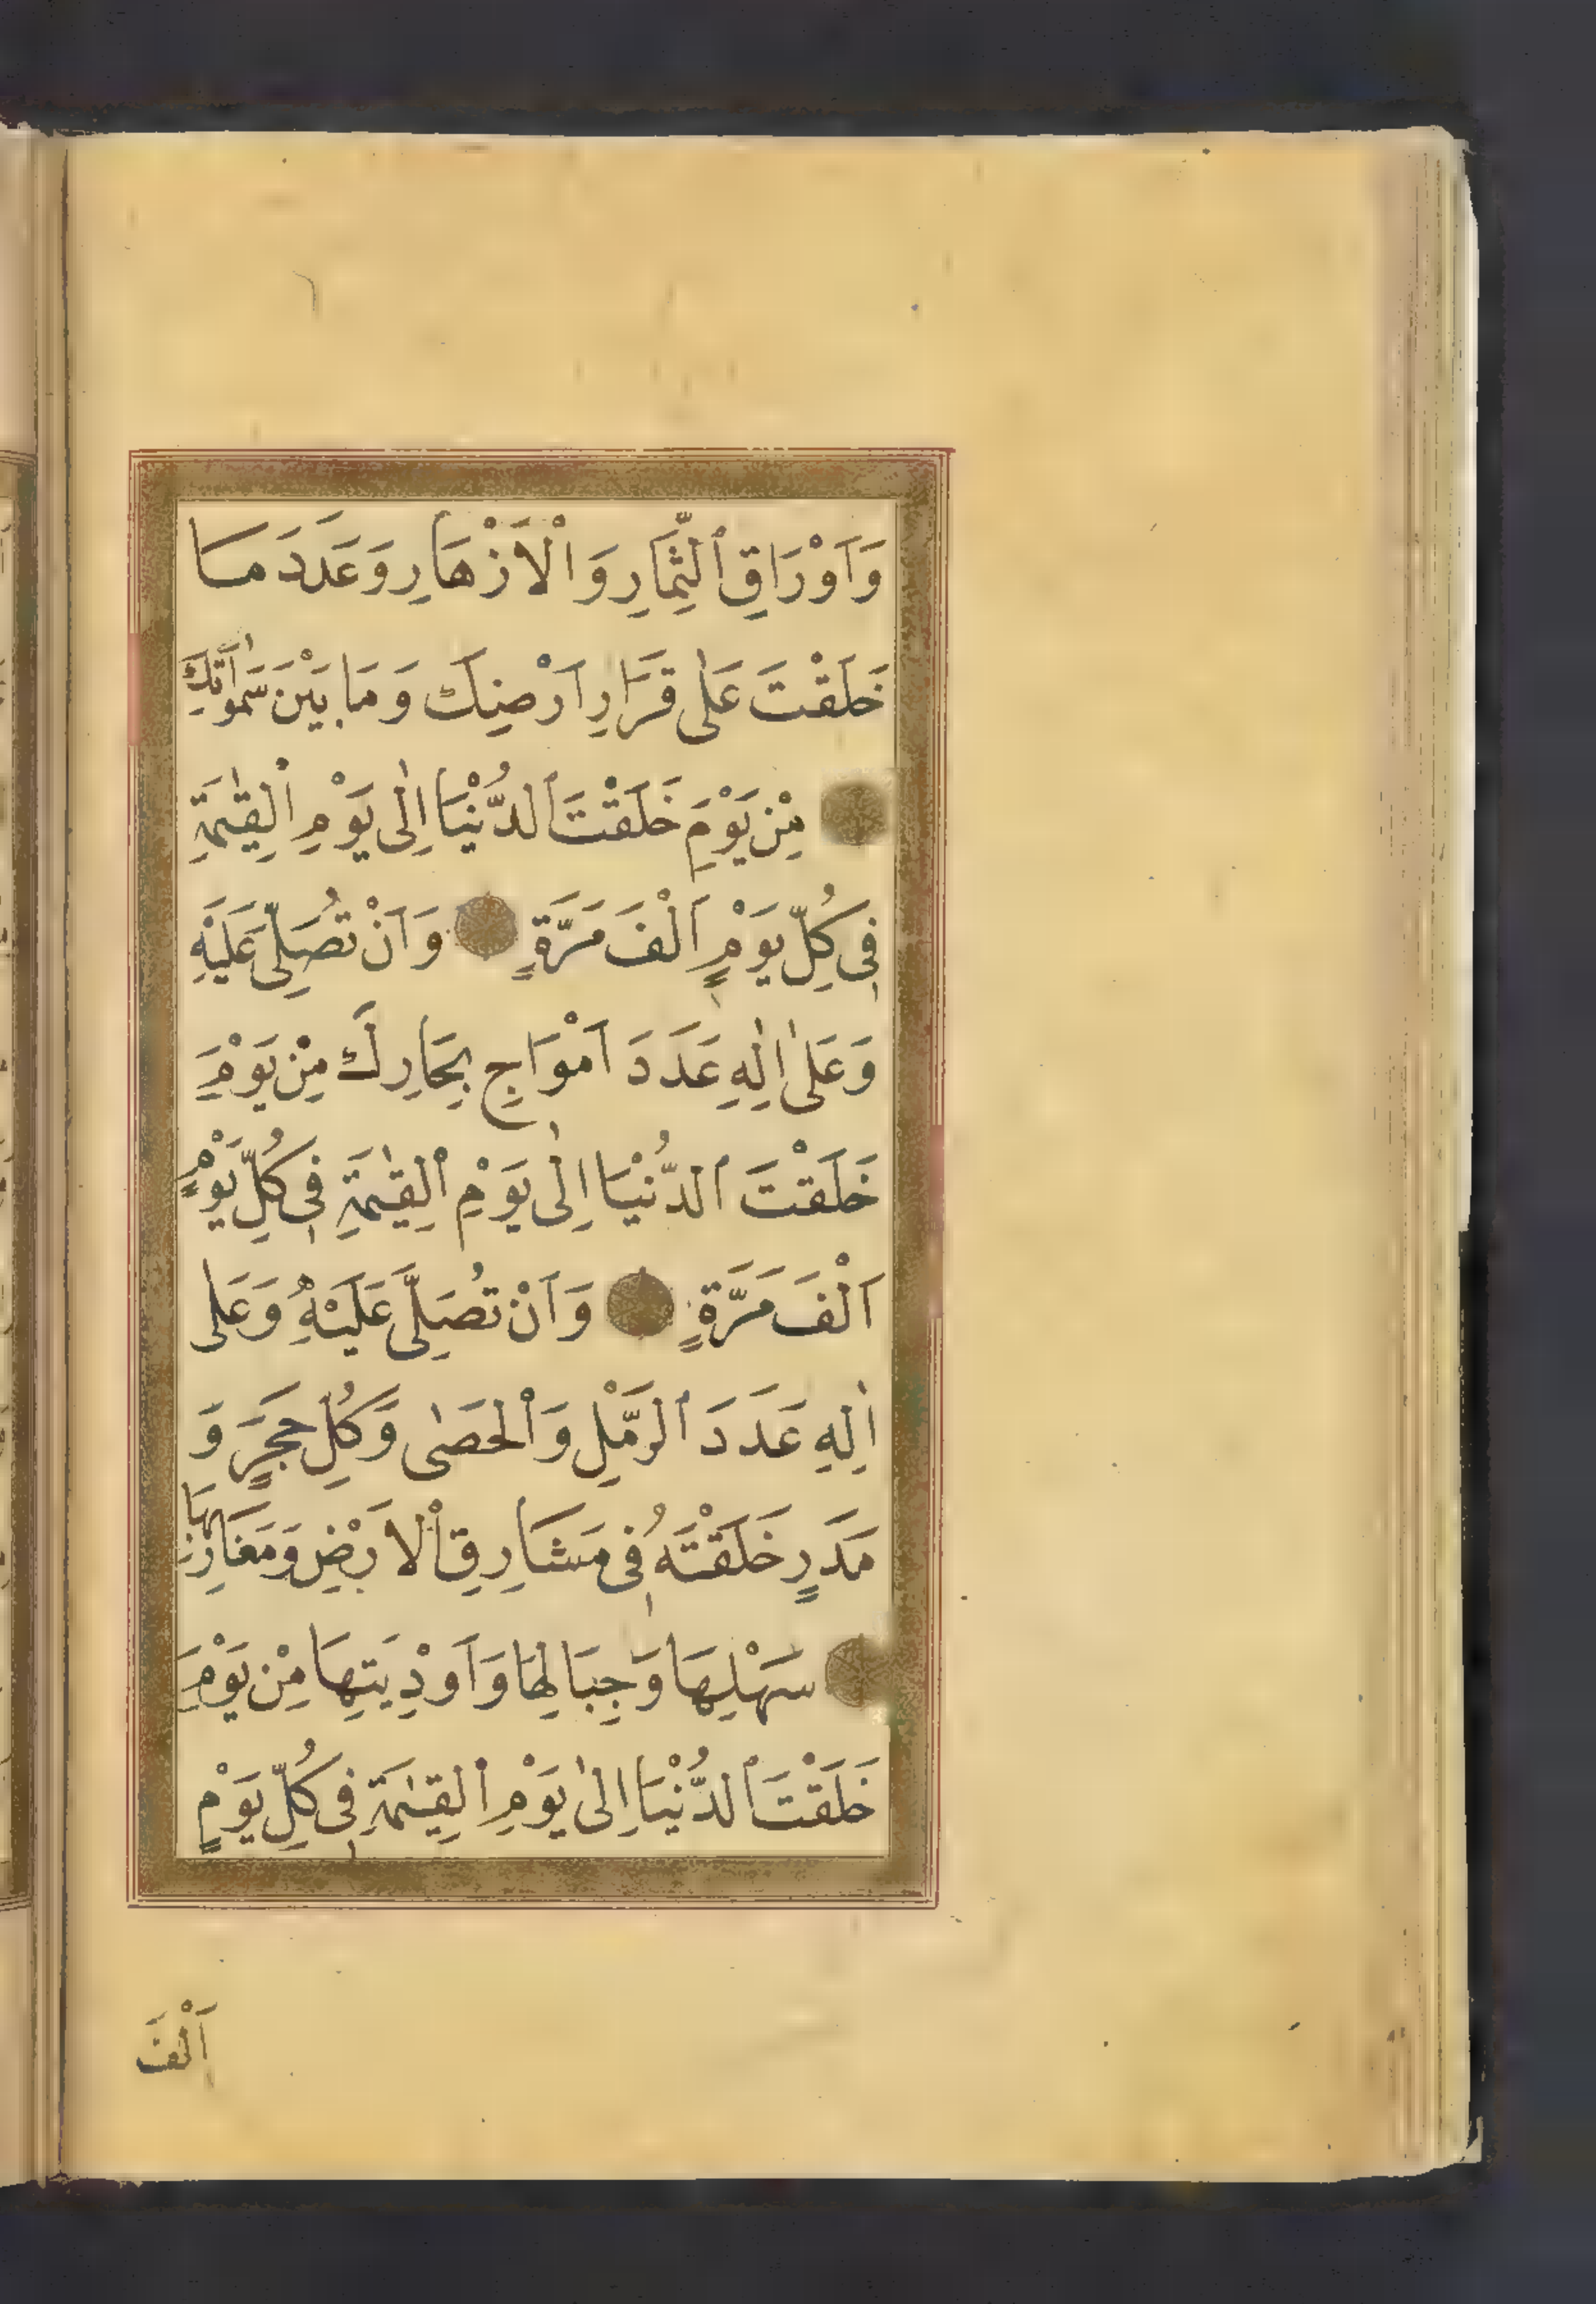 وَاَوْرَاقِ ٱلثِّمَارِ وَالْاَزْهَارِ وَعَدَدَ مَا
خَلَقْتَ عَلٰى قَرَارِ اَرْضِكَ وَمَا بَيْنَ سَمٰوَاتِكَ
مِنْ يَوْمِ خَلَقْتَ ٱلدُّنْيَا اِلٰى يَوْمِ ٱلْقِيٰمَةِ
فِى كُلِّ يَوْمٍ اَلْفَ مَرَّةٍ وَاَنْ تُصَلِّىَ عَلَيْهِ
وَعَلٰى اٰلِهِ عَدَدَ اَمْوَاجِ بِحَارِكَ مِنْ يَوْمِ
خَلَقْتَ ٱلدُّنْيَا اِلٰى يَوْمِ ٱلْقِيٰمَةِ فِى كُلِّ يَوْمٍ
اَلْفَ مَرَّةٍ وَاَنْ تُصَلِّىَ عَلَيْهِ وَعَلٰى
اٰلِهِ عَدَدَ ٱلرَّمْلِ وَٱلْحَصٰى وَكُلِّ حَجَرٍ وَ
مَدَرٍ خَلَقْتَهُ فِى مَشَارِقِ ٱلْاَرْضِ وَمَغَارِبِهَا
سَهْلِهَا وَجِبَالِهَا وَاَوْدِيَتِهَا مِنْ يَوْمِ
خَلَقْتَ ٱلدُّنْيَا اِلٰى يَوْمِ ٱلْقِيٰمَةِ فِى كُلِّ يَوْمٍ
اَلْفَ